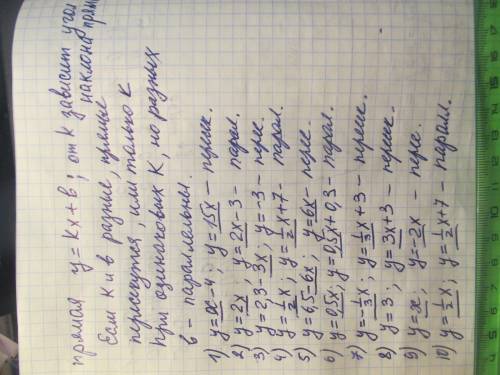 прямая y = kx + b; от k зависит угол
наклона прям
Если k и в разные, прямые
пересекутся, или только k
при одинаковых k, но разных
в - параллельны.
1) y = x - 4; y = 15x - перес.
2) y = 2x; y = 2x - 3 - парал.
3) y = 23 - 3x; y = -3 - перес.
4) y = 1/2 x; y = 1/2 x + 7 - парал.
5) y = 6,5 - 6x; y = 6x - перес.
6) y = 0,5x; y = 0,5x + 0,3 - парал.
7) y = -1/3 x; y = 1/3 x + 3 - перес.
8) y = 3; y = 3x + 3 - перес.
9) y = x; y = -2x - перес.
10) y = 1/2 x; y = 1/2 x + 7 - паралл.